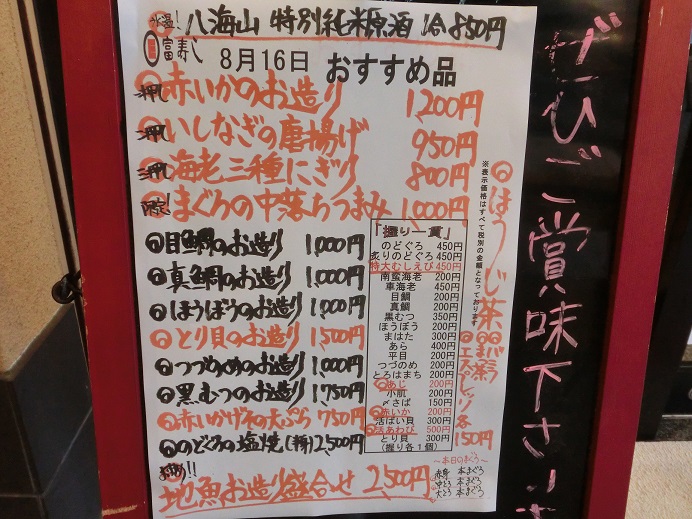 氷温! 八海山 特別純米原酒 1合 850円
富寿し 8月16日 おすすめ品
押 赤いかのお造り 1,200円
押 いしなぎの唐揚げ 950円
押 海老三種にぎり 800円
限定! まぐろの中落ちつまみ 1,000円
目鯛のお造り 1,000円
真鯛のお造り 1,000円
ほうぼうのお造り 1,000円
とり貝のお造り 1,500円
つづめのお造り 1,000円
黒むつのお造り 1,750円
赤いかげその天ぷら 750円
のどぐろの塩焼(1本) 2,500円
地魚お造り盛合せ 2,500円
「握り一貫」
のどぐろ 450円
炙りのどぐろ 450円
特大むしえび 450円
南蛮海老 200円
車海老 450円
目鯛 200円
真鯛 200円
黒むつ 350円
ほうぼう 200円
まはた 300円
あら 400円
平目 200円
つづのめ 200円
とろはまち 200円
あじ 200円
小肌 200円
〆さば 150円
赤いか 200円
活ばい貝 300円
活あわび 500円
とり貝 300円
(握り各1個)
〜本日のまぐろ〜
赤身 本まぐろ
中とろ 本まぐろ
大とろ 本まぐろ
※表示価格はすべて税別の金額となっております
ほうじ茶
エスプレッソ 各150円
ぜひご賞味下さい